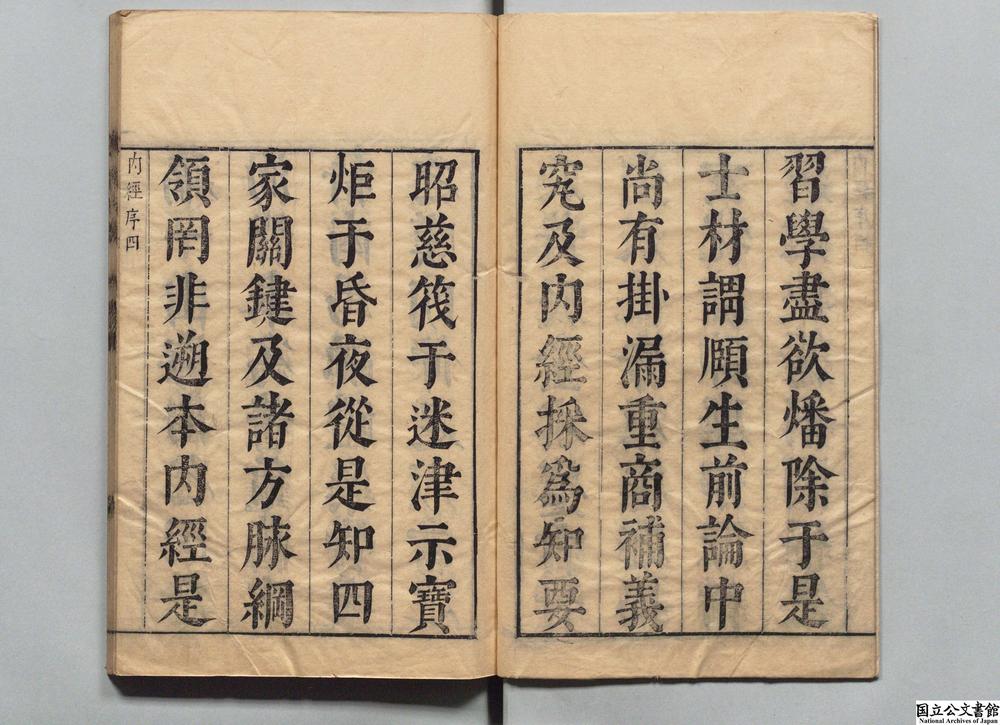 習學盡欲燔除于是
士材謂願生前論中
尚有掛漏重商補義
究及内經採為知要
昭慈筏于迷津示寶
炬于昏夜從是知四
家關鍵及諸方脉綱
領罔非遡本内經是
内經序四
国立公文書館
National Archives of Japan